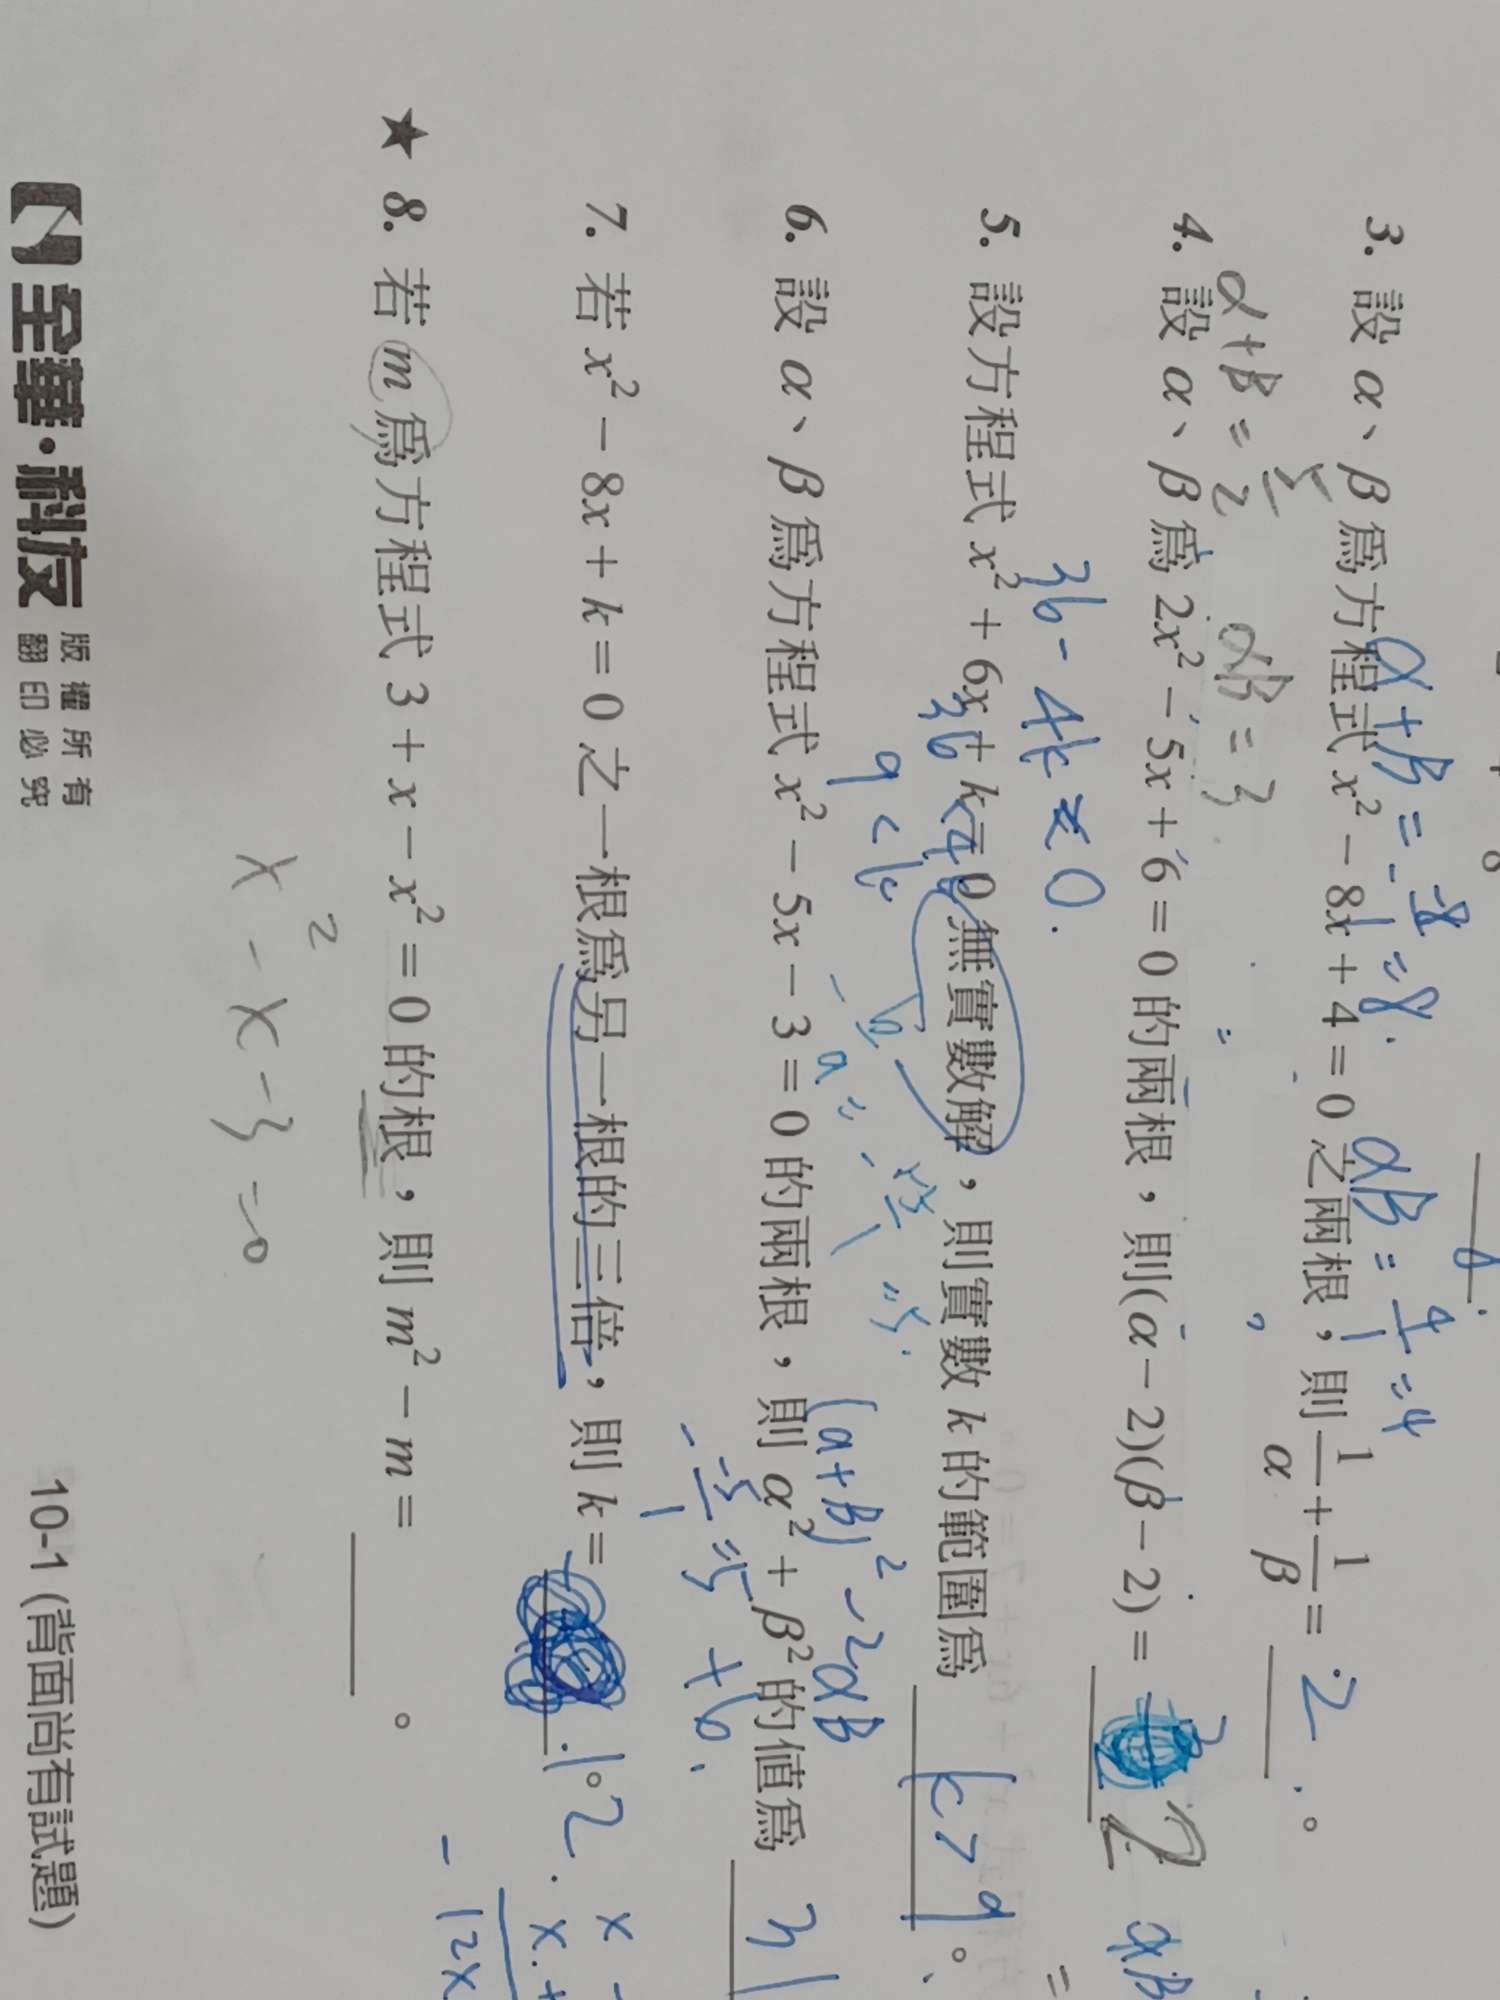 α+β = -8/1 = 8. αβ = 4/1 = 4
3. 設 α、β 為方程式 x² − 8x + 4 = 0 之兩根,則 1/α + 1/β = 2 。
α+β = 5/2 αβ = 3
4. 設 α、β 為 2x² − 5x + 6 = 0 的兩根,則(α − 2)(β − 2) = 2 αβ
36 - 4k < 0.
5. 設方程式 x² + 6x + k = 0 無實數解,則實數 k 的範圍為 k > 9 。
36 < 4k
9 < k
(α+β)² - 2αβ
6. 設 α、β 為方程式 x² − 5x − 3 = 0 的兩根,則 α² + β² 的值為 31
7. 若 x² − 8x + k = 0 之一根為另一根的三倍,則 k = 12 。
- 12x
★ 8. 若 m 為方程式 3 + x − x² = 0 的根,則 m² − m = 。
x² - x - 3 = 0
全華·科友 版權所有 翻印必究
10-1 (背面尚有試題)